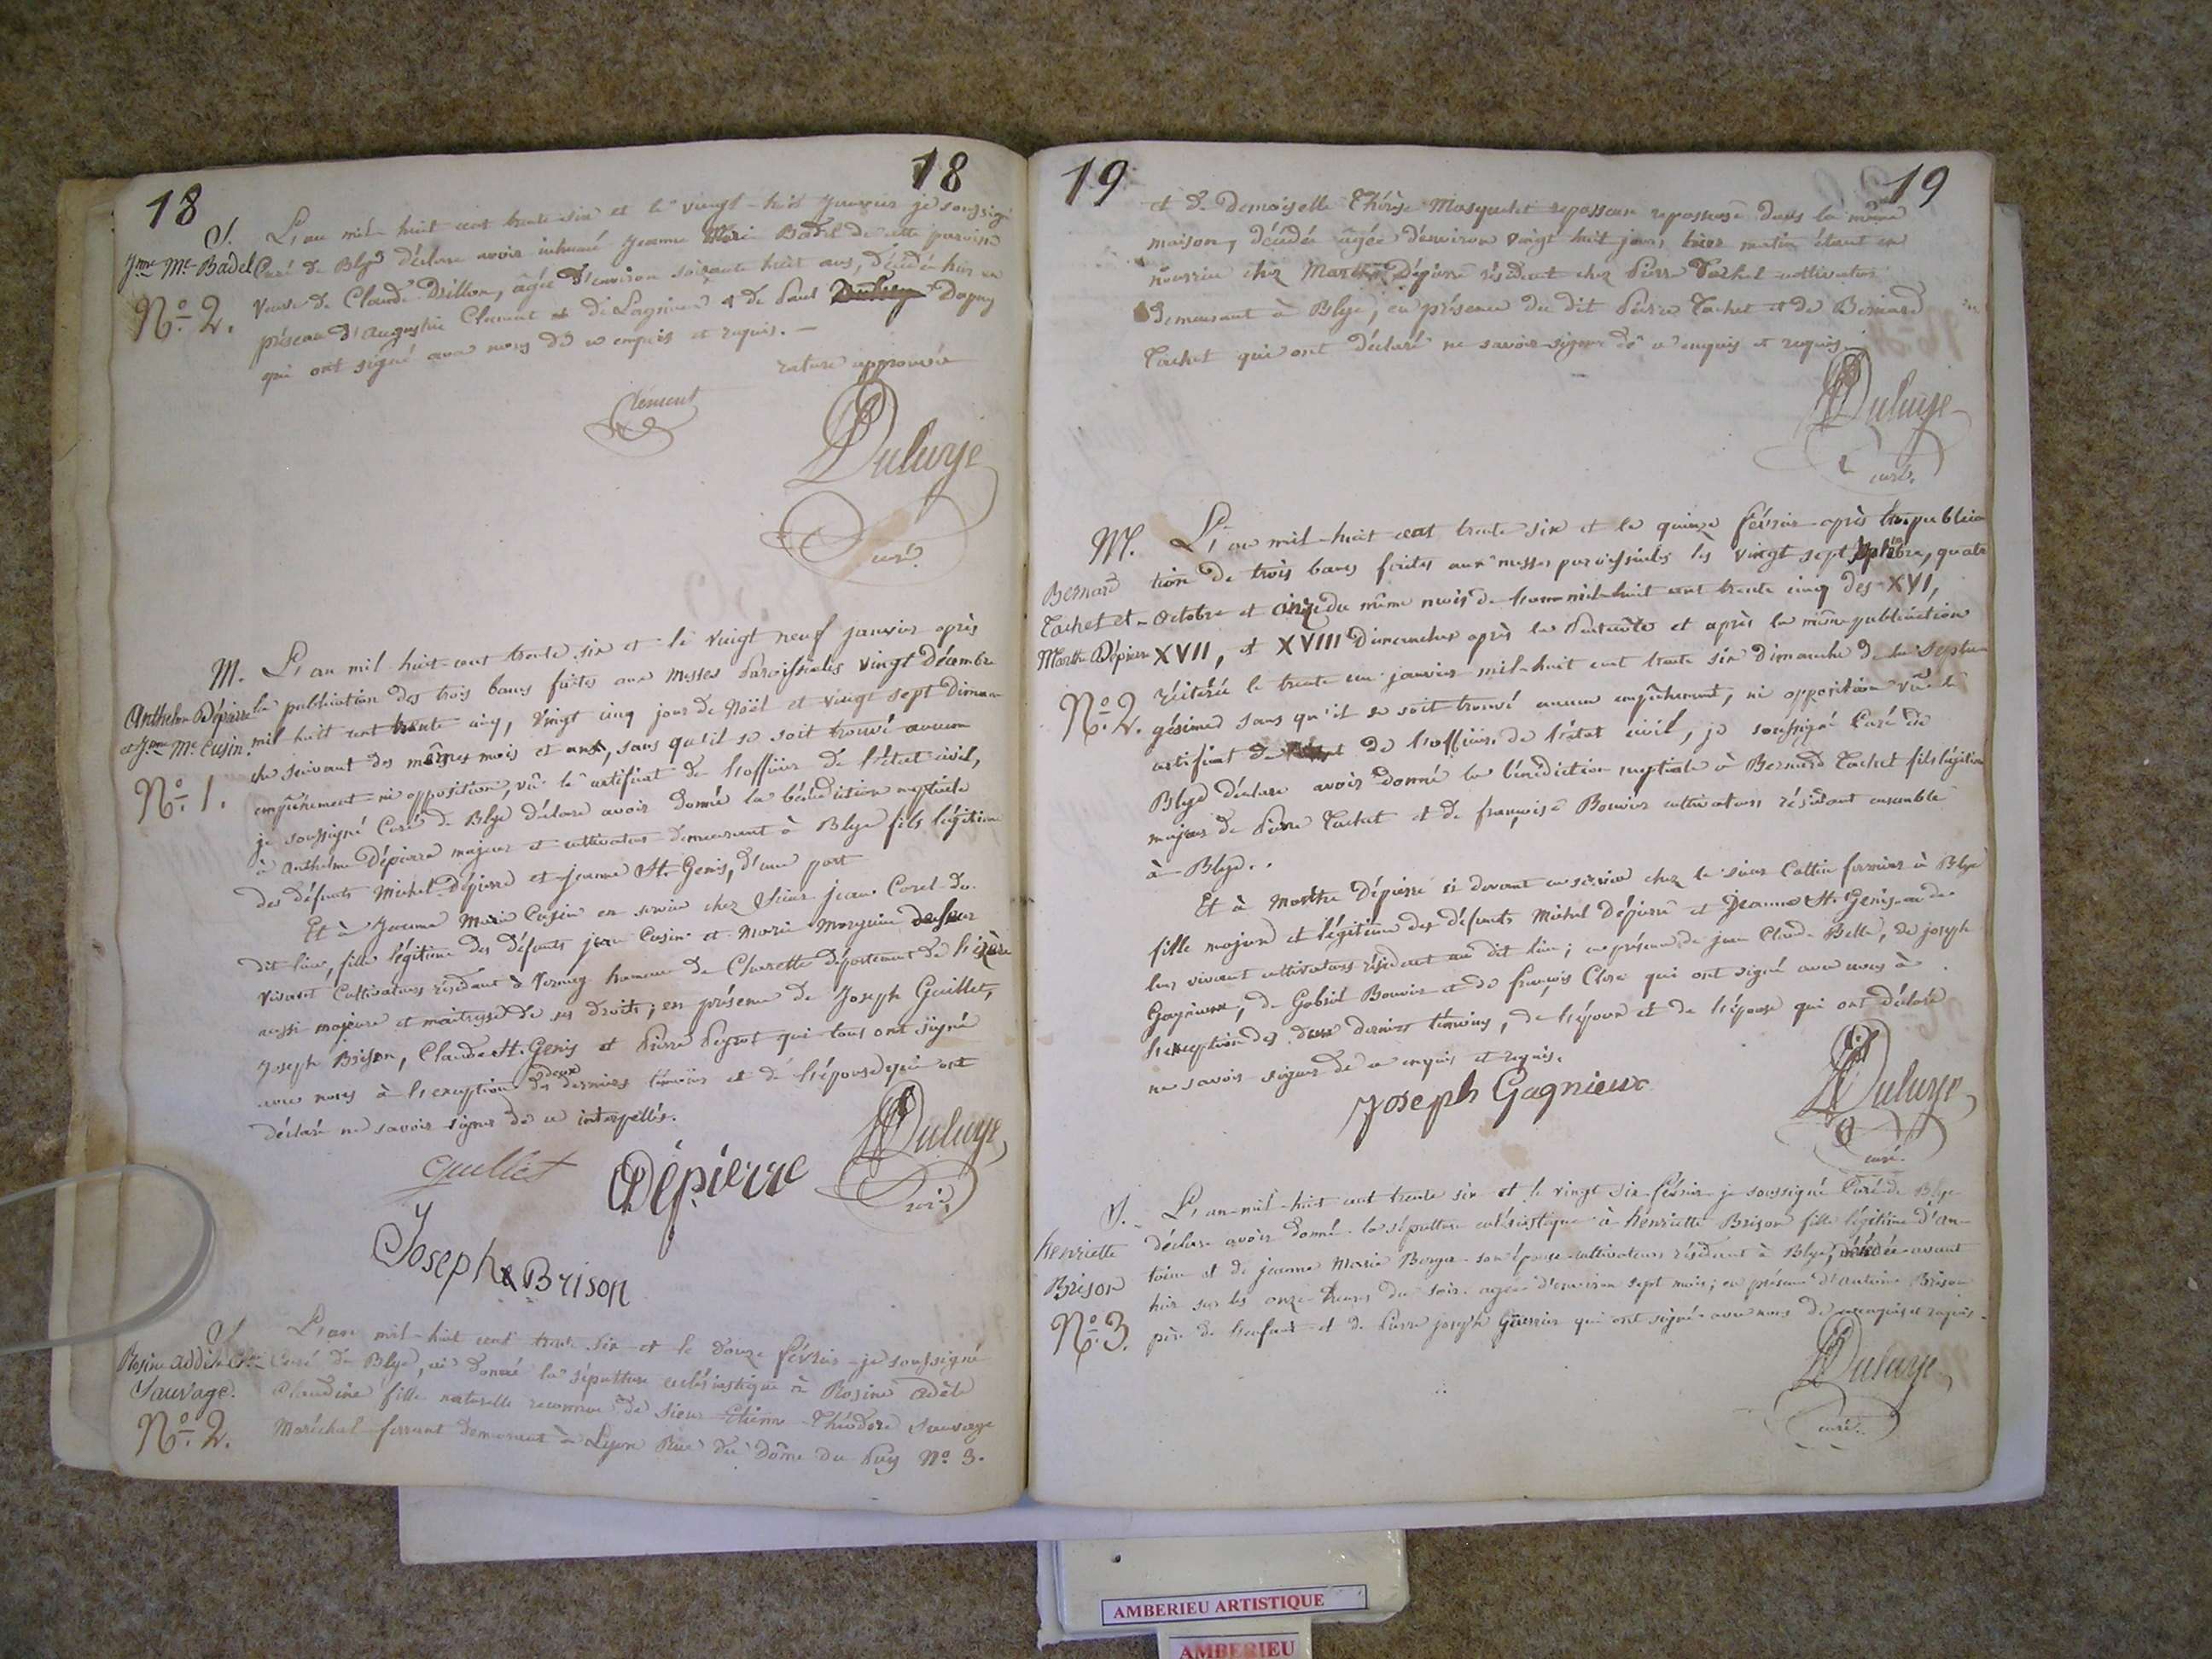 18
18
S. L'an mil huit cent trente six et le vingt-huit janvier je soussigné
Jnne Me Badel Curé de Blye déclare avoir inhumé Jeanne Marie Badel de cette paroisse
No 2. veuve de Claude Drillon, âgée d'environ soixante huit ans, décédée hier en
présence d'Augustin Clément de Lagnieu et de Paul Dupuy
qui ont signé avec nous de ce enquis et requis. —
rature approuvée
Clément
Duluye
curé
M. L'an mil huit cent trente six et le vingt neuf janvier après
Anthelme Dépierre la publication des trois bans faites aux Messes Paroissiales vingt Décembre
et Jnne Me Cusin. mil huit cent trente cinq, vingt cinq jour de Noël et vingt sept Diman-
No 1. che suivant des mêmes mois et ans, sans qu'il se soit trouvé aucun
empêchement ni opposition, vû le certificat de l'officier de l'état civil,
je soussigné Curé de Blye déclare avoir donné la bénédiction nuptiale
à Anthelme Dépierre majeur et cultivateur demeurant à Blye fils légitime
des défunts Michel Dépierre et Jeanne St. Genis, d'une part
Et à Jeanne Marie Cusin en service chez Sieur Jean Corel du
dit lieu, fille légitime des défunts jean Cusin et Marie de leur
vivant Cultivateurs résidant à hameau de Charette département de l'izère
aussi majeure et maitresse de ses droits; en présence de Joseph Guillet,
Joseph Brison, Claude St. Genis et Pierre Peyrot qui tous ont signé
avec nous à l'exception des deux derniers témoins et de l'épouse qui ont
déclaré ne savoir signer de ce interpellés.
Guillet Dépierre Duluye
curé
Joseph Brison
S. L'an mil-huit cent trente six et le douze février je soussigné
Rosine Adèle Cne Curé de Blye, ai donné la sépulture ecclésiastique à Rosine Adèle
Sauvage. Claudine fille naturelle reconnue de sieur Etienne Théodore Sauvage
No 2. Maréchal ferrant demeurant à Lyon Rue du Dôme du Puy No 3.
19
19
et de Demoiselle Thérèse Masquelet repasseuse dans la même
maison, décédée âgée d'environ vingt huit jours, hier matin étant en
nourrice chez Marthe Dépierre résidant chez Pierre Tachet cultivateur
demeurant à Blye, en présence du dit Pierre Tachet et de Bernard
Tachet qui ont déclaré ne savoir signer de ce enquis et requis.
Duluye
curé.
M. L'an mil-huit cent trente six et le quinze février après la publica-
Bernard tion de trois bans faites aux messes paroissiales les vingt sept septembre, quatre
Tachet et Octobre et onze du même mois de l'an mil-huit cent trente cinq des XVI,
Marthe Dépierre XVII, et XVIII Dimanches après la Pentecôte et après la même publication
No 2. réitérée le trente un janvier mil-huit cent trente six Dimanche de la Septua-
gésime sans qu'il se soit trouvé aucun empêchement, ni opposition vû le
certificat de de l'officier de l'état civil, je soussigné Curé de
Blye déclare avoir donné la bénédiction nuptiale à Bernard Tachet fils légitime
majeur de Pierre Tachet et de françoise Bouvier cultivateurs résidant ensemble
à Blye.
Et à Marthe Dépierre ci devant en service chez le sieur Cottin fermier à Blye
fille majeure et légitime des défunts Michel Dépierre et Jeanne St. Genis de
leur vivant cultivateurs résidant au dit lieu; en présence de jean Claude Belle, de joseph
Gagnieux, de Gabriel Bouvier et de françois Clerc qui ont signé avec nous à
l'exception des deux derniers témoins, de l'époux et de l'épouse qui ont déclaré
ne savoir signer de ce enquis et requis.
Joseph Gagnieux Duluye
curé.
S. L'an-mil-huit cent trente six et le vingt six février je soussigné Curé de Blye
henriette déclare avoir donné la sépulture ecclésiastique à henriette Brison fille légitime d'An-
Brison toine et de jeanne Marie Berger son épouse cultivateurs résidant à Blye, décédée avant
No 3. hier sur les onze heures du soir âgée d'environ sept mois; en présence d'antoine Brison
père de l'enfant et de Pierre joseph Guerrier qui ont signé avec nous de ce enquis et requis.
Duluye
curé.
AMBERIEU ARTISTIQUE
AMBERIEU